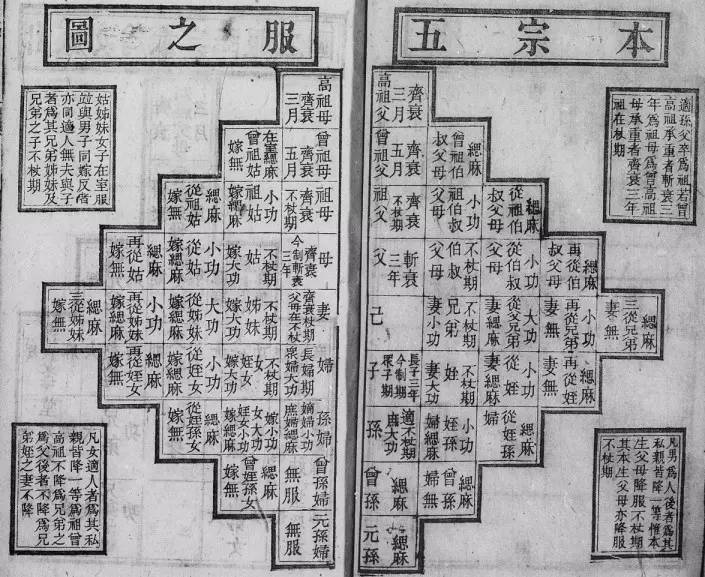 本宗五
服之圖
適孫父卒為祖若曾
高祖承重者斬衰三
年為祖母為曾高祖
母承重者齊衰三年
祖在杖期
齊衰
三月
高祖父
緦麻
曾祖伯
叔父母
齊衰
五月
曾祖父
緦麻
從祖伯
叔父母
小功
祖伯叔
父母
齊衰
不杖期
祖父
緦麻
再從伯
叔父母
小功
從伯叔
父母
不杖期
伯叔
父母
斬衰
三年
父
緦麻
三從兄弟
妻無
小功
再從兄弟
妻無
大功
從父兄弟
妻緦麻
不杖期
兄弟
妻小功
己
緦麻
再從姪
妻無
小功
從姪
妻緦麻
不杖期
姪
妻大功
長子三年
今制期
衆子期
子
緦麻
從姪孫
婦
小功
姪孫
婦緦麻
適不杖期
庶大功
孫
緦麻
曾姪孫
婦無
緦麻
曾孫
緦麻
元孫
凡男為人後者為其
私親皆降一等惟本
生父母降服不杖期
其本生父母亦降服
不杖期
高祖母
齊衰
三月
曾祖母
齊衰
五月
在室緦麻
曾祖姑
嫁無
祖母
齊衰
不杖期
小功
祖姑
嫁緦麻
緦麻
從祖姑
嫁無
母
齊衰
今制斬衰
三年
不杖期
姑
嫁大功
小功
從姑
嫁緦麻
緦麻
再從姑
嫁無
妻
齊衰杖期
父母在不杖
不杖期
姊妹
嫁大功
大功
從姊妹
嫁緦麻
小功
再從姊妹
嫁緦麻
緦麻
三從姊妹
嫁無
婦
長婦期
衆婦大功
不杖期
女
姪女
嫁大功
小功
從姪女
嫁緦麻
緦麻
再從姪女
嫁無
孫婦
嫡婦小功
庶婦緦麻
女大功
嫁小功
姪女小功
嫁緦麻
緦麻
從姪孫女
嫁無
曾孫婦
無服
緦麻
曾姪孫女
嫁無
元孫婦
無服
姑姊妹女子在室服
竝與男子同嫁反者
亦同適人無夫與子
者為其兄弟姊妹及
兄弟之子不杖期
凡女適人者為其私
親皆降一等為祖曾
高祖不降為兄弟之
為父後者不降為兄
弟姪之妻不降